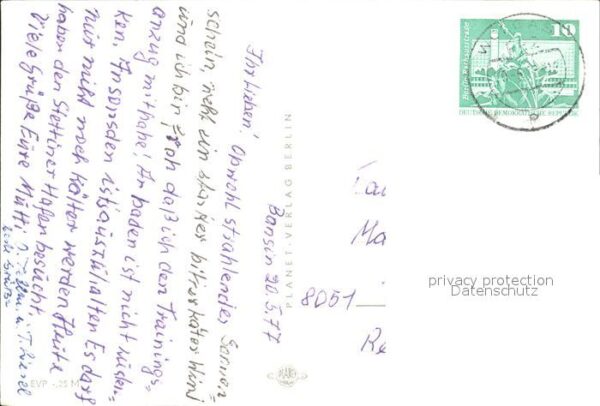 Bansin 20.5.77
Ihr Lieben! Obwohl strahlender Sonnen-
schein, weht ein starker bitterkalter Wind
und ich bin froh daß ich den Trainings-
anzug mithabe! An baden ist nicht zu den-
ken. Ansonsden ists auszuhalten Es darf
nur nicht noch kälter werden Heute
haben den Stettiner Hafen besucht
Viele Grüße Eure Mutti
PLANET-VERLAG BERLIN
EVP -,25 M
10
DEUTSCHE DEMOKRATISCHE REPUBLIK
Fa
Ma
8051
Re
privacy protection
Datenschutz